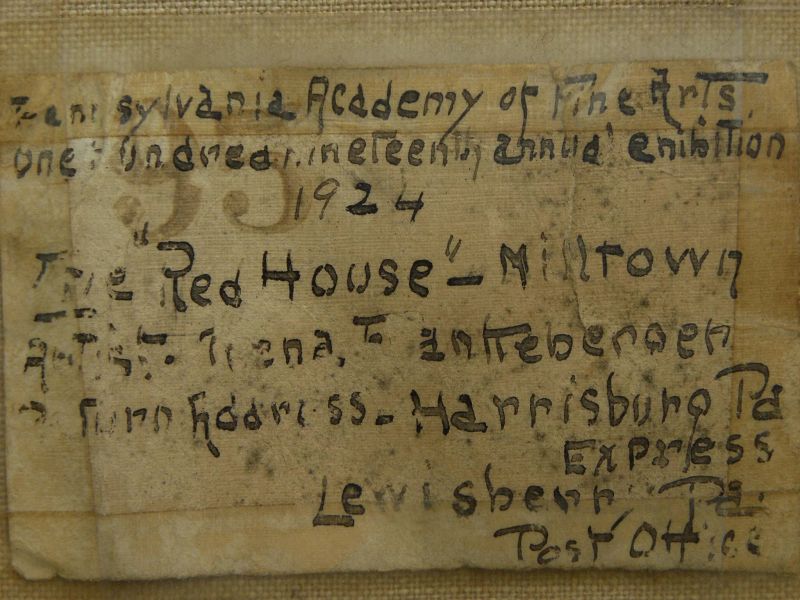 Pennsylvania Academy of Fine Arts
One Hundred nineteenth annual exhibition
1924
The "Red House" - Milltown
Artist.
Return Address - Harrisburg Pa
Express
Lewisberry Pa.
Post Office